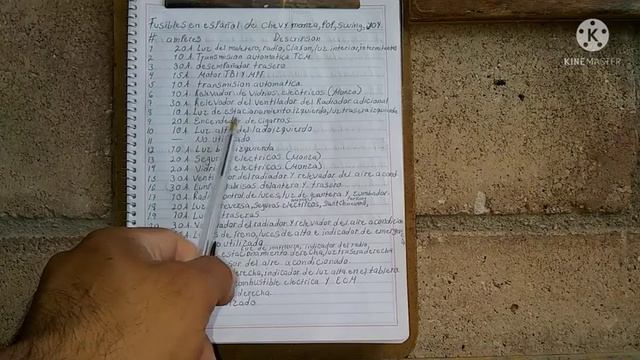 Fusibles en español de chevy monza, POP, swing, joy.
# amperes Descripsion
1 20A Luz del maletero, radio, Claxon, luz interior, intermitentes
2 10A Transmision automatica TCM
3 30A desempañador trasero
4 15A Motor TBI Y MPF
5 10A transmision automatica
6 10A Relevador de Vidrios electricos (Monza)
7 30A Relevador del ventilador del Radiador adicional
8 10A Luz de estacionamiento izquierda, luz trasera izquierda
9 20A Encendedor de cigarros
10 10A Luz alta del lado izquierdo
11 No utilizado
12 10A Luz izquierda
13 20A electricos (Monza)
14 20A electricos (Monza)
15 30A del radiador y relevador del aire acond
16 30A delantera y trasero
17 10A control de luces, luz de guantera y zumbador
18 seguros electricos,
19 10A traseras
30A radiador y relevador del aire acondicion
de freno, luces de alto e indicador de emergen
utilizado
indicador del radio,
estacionamiento derecha, luz trasera derecha
del aire acondicionado
derecha, indicador de luz alta en el tablero
combustible electrica Y ECM
derecha
KINEMASTER